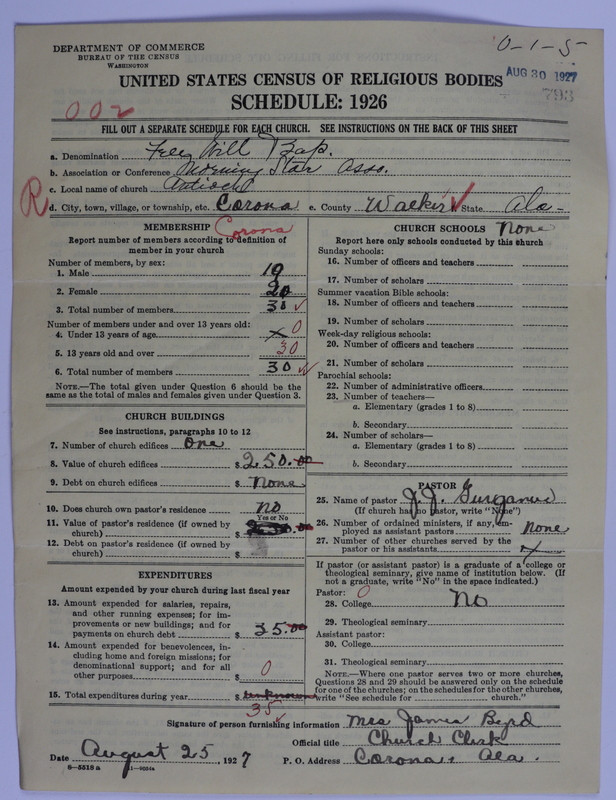 DEPARTMENT OF COMMERCE
BUREAU OF THE CENSUS
WASHINGTON
0-1-5
AUG 30 1927
793
UNITED STATES CENSUS OF RELIGIOUS BODIES
SCHEDULE: 1926
002
FILL OUT A SEPARATE SCHEDULE FOR EACH CHURCH. SEE INSTRUCTIONS ON THE BACK OF THIS SHEET
a. Denomination Free Will Bap.
b. Association or Conference Morning Star Asso.
c. Local name of church Antioch
R d. City, town, village, or township, etc. Corona e. County Walker State Ala-
MEMBERSHIP Corona
Report number of members according to definition of
member in your church
Number of members, by sex:
1. Male 10
2. Female 20
3. Total number of members 30
Number of members under and over 13 years old:
4. Under 13 years of age x 0
5. 13 years old and over 30
6. Total number of members 30
NOTE.—The total given under Question 6 should be the
same as the total of males and females given under Question 3.
CHURCH BUILDINGS
See instructions, paragraphs 10 to 12
7. Number of church edifices one
8. Value of church edifices $ 250.00
9. Debt on church edifices $ None
10. Does church own pastor's residence no
Yes or No
11. Value of pastor's residence (if owned by
church) $
12. Debt on pastor's residence (if owned by
church) $
EXPENDITURES
Amount expended by your church during last fiscal year
13. Amount expended for salaries, repairs,
and other running expenses; for im-
provements or new buildings; and for
payments on church debt $ 35.00
14. Amount expended for benevolences, in-
cluding home and foreign missions; for
denominational support; and for all
other purposes $ 0
15. Total expenditures during year $ unknown
35
CHURCH SCHOOLS None
Report here only schools conducted by this church
Sunday schools:
16. Number of officers and teachers
17. Number of scholars
Summer vacation Bible schools:
18. Number of officers and teachers
19. Number of scholars
Week-day religious schools:
20. Number of officers and teachers
21. Number of scholars
Parochial schools:
22. Number of administrative officers
23. Number of teachers—
a. Elementary (grades 1 to 8)
b. Secondary
24. Number of scholars—
a. Elementary (grades 1 to 8)
b. Secondary
PASTOR
25. Name of pastor J. J. Gurganus
(If church has no pastor, write "None")
26. Number of ordained ministers, if any, em-
ployed as assistant pastors none
27. Number of other churches served by the
pastor or his assistants x
If pastor (or assistant pastor) is a graduate of a college or
theological seminary, give name of institution below. (If
not a graduate, write "No" in the space indicated.)
Pastor: 0
28. College No
29. Theological seminary
Assistant pastor:
30. College
31. Theological seminary
NOTE.—Where one pastor serves two or more churches,
Questions 28 and 29 should be answered only on the schedule
for one of the churches; on the schedules for the other churches,
write "See schedule for church."
Signature of person furnishing information Mrs James Byrd
Official title Church Clerk
Date August 25, 1927 P. O. Address Corona, Ala.
8—5518 a 11—9554a